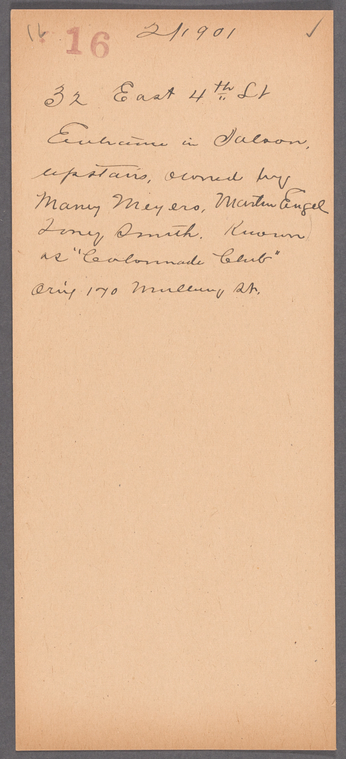 16 16 2/1901 ✓
32 East 4th St
Entrance in Saloon,
upstairs, owned by
Maney Meyers, Martin Engel
Toney Smith. Known
as "Colonnade Club"
170 Mulberry St.